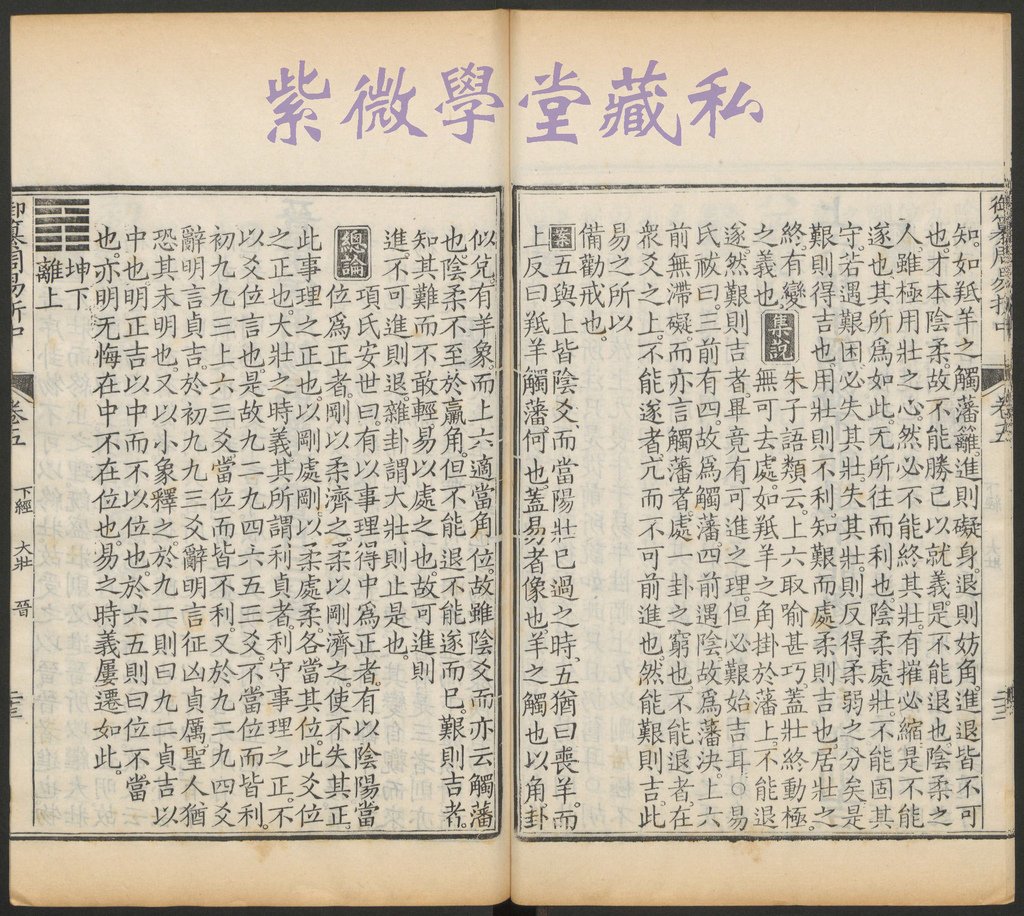 紫微學堂藏私
御纂周易折中 卷五
知。如羝羊之觸藩籬。進則礙身。退則妨角。進退皆不可
也。才本陰柔。故不能勝己以就義。是不能退也。陰柔之
人。雖極用壯之心。然必不能終其壯。有摧必縮。是不能
遂也。其所爲如此。无所往而利也。陰柔處壯。不能固其
守。若遇艱困。必失其壯。失其壯。則反得柔弱之分矣。是
艱則得吉也。用壯則不利。知艱而處柔則吉也。居壯之
終。有變
之義也。
集說
朱子語類云。上六取喻甚巧。蓋壯終動極。
無可去處。如羝羊之角掛於藩上。不能退
遂。然艱則吉者。畢竟有可進之理。但必艱始吉耳○易
氏祓曰。三前有四。故爲觸藩。四前遇陰。故爲藩決。上六
前無滯礙。而亦言觸藩者。處一卦之窮也。不能退者。在
衆爻之上。不能遂者。亢而不可前進也。然能艱則吉。此
易之所以
備勸戒也。
案五與上皆陰爻。而當陽壯已過之時。五猶曰喪羊。而
上反曰羝羊觸藩。何也。蓋易者像也。羊之觸也以角。卦
似兌。有羊象。而上六適當角位。故雖陰爻而亦云觸藩
也。陰柔不至於羸角。但不能退不能遂而已。艱則吉者。
知其難而不敢輕易以處之也。故可進則
進。不可進則退。雜卦謂大壯則止是也。
總論
項氏安世曰。有以事理得中爲正者。有以陰陽當
位爲正者。剛以柔濟之。柔以剛濟之。使不失其正。
此事理之正也。以剛處剛。以柔處柔。各當其位。此爻位
之正也。大壯之時義。其所謂利貞者。利守事理之正。不
以爻位言也。是故九二九四六五三爻。不當位而皆利。
初九九三上六三爻。當位而皆不利。又於九二九四爻
辭明言貞吉。於初九九三爻辭明言征凶貞厲。聖人猶
恐其未明也。又以小象釋之。於九二則曰九二貞吉以
中也。明正吉以中而不以位也。於六五則曰位不當
也。亦明无悔在中不在位也。易之時義屢遷如此。
坤下
離上
御纂周易折中 卷五 下經 大壯 晉 二三